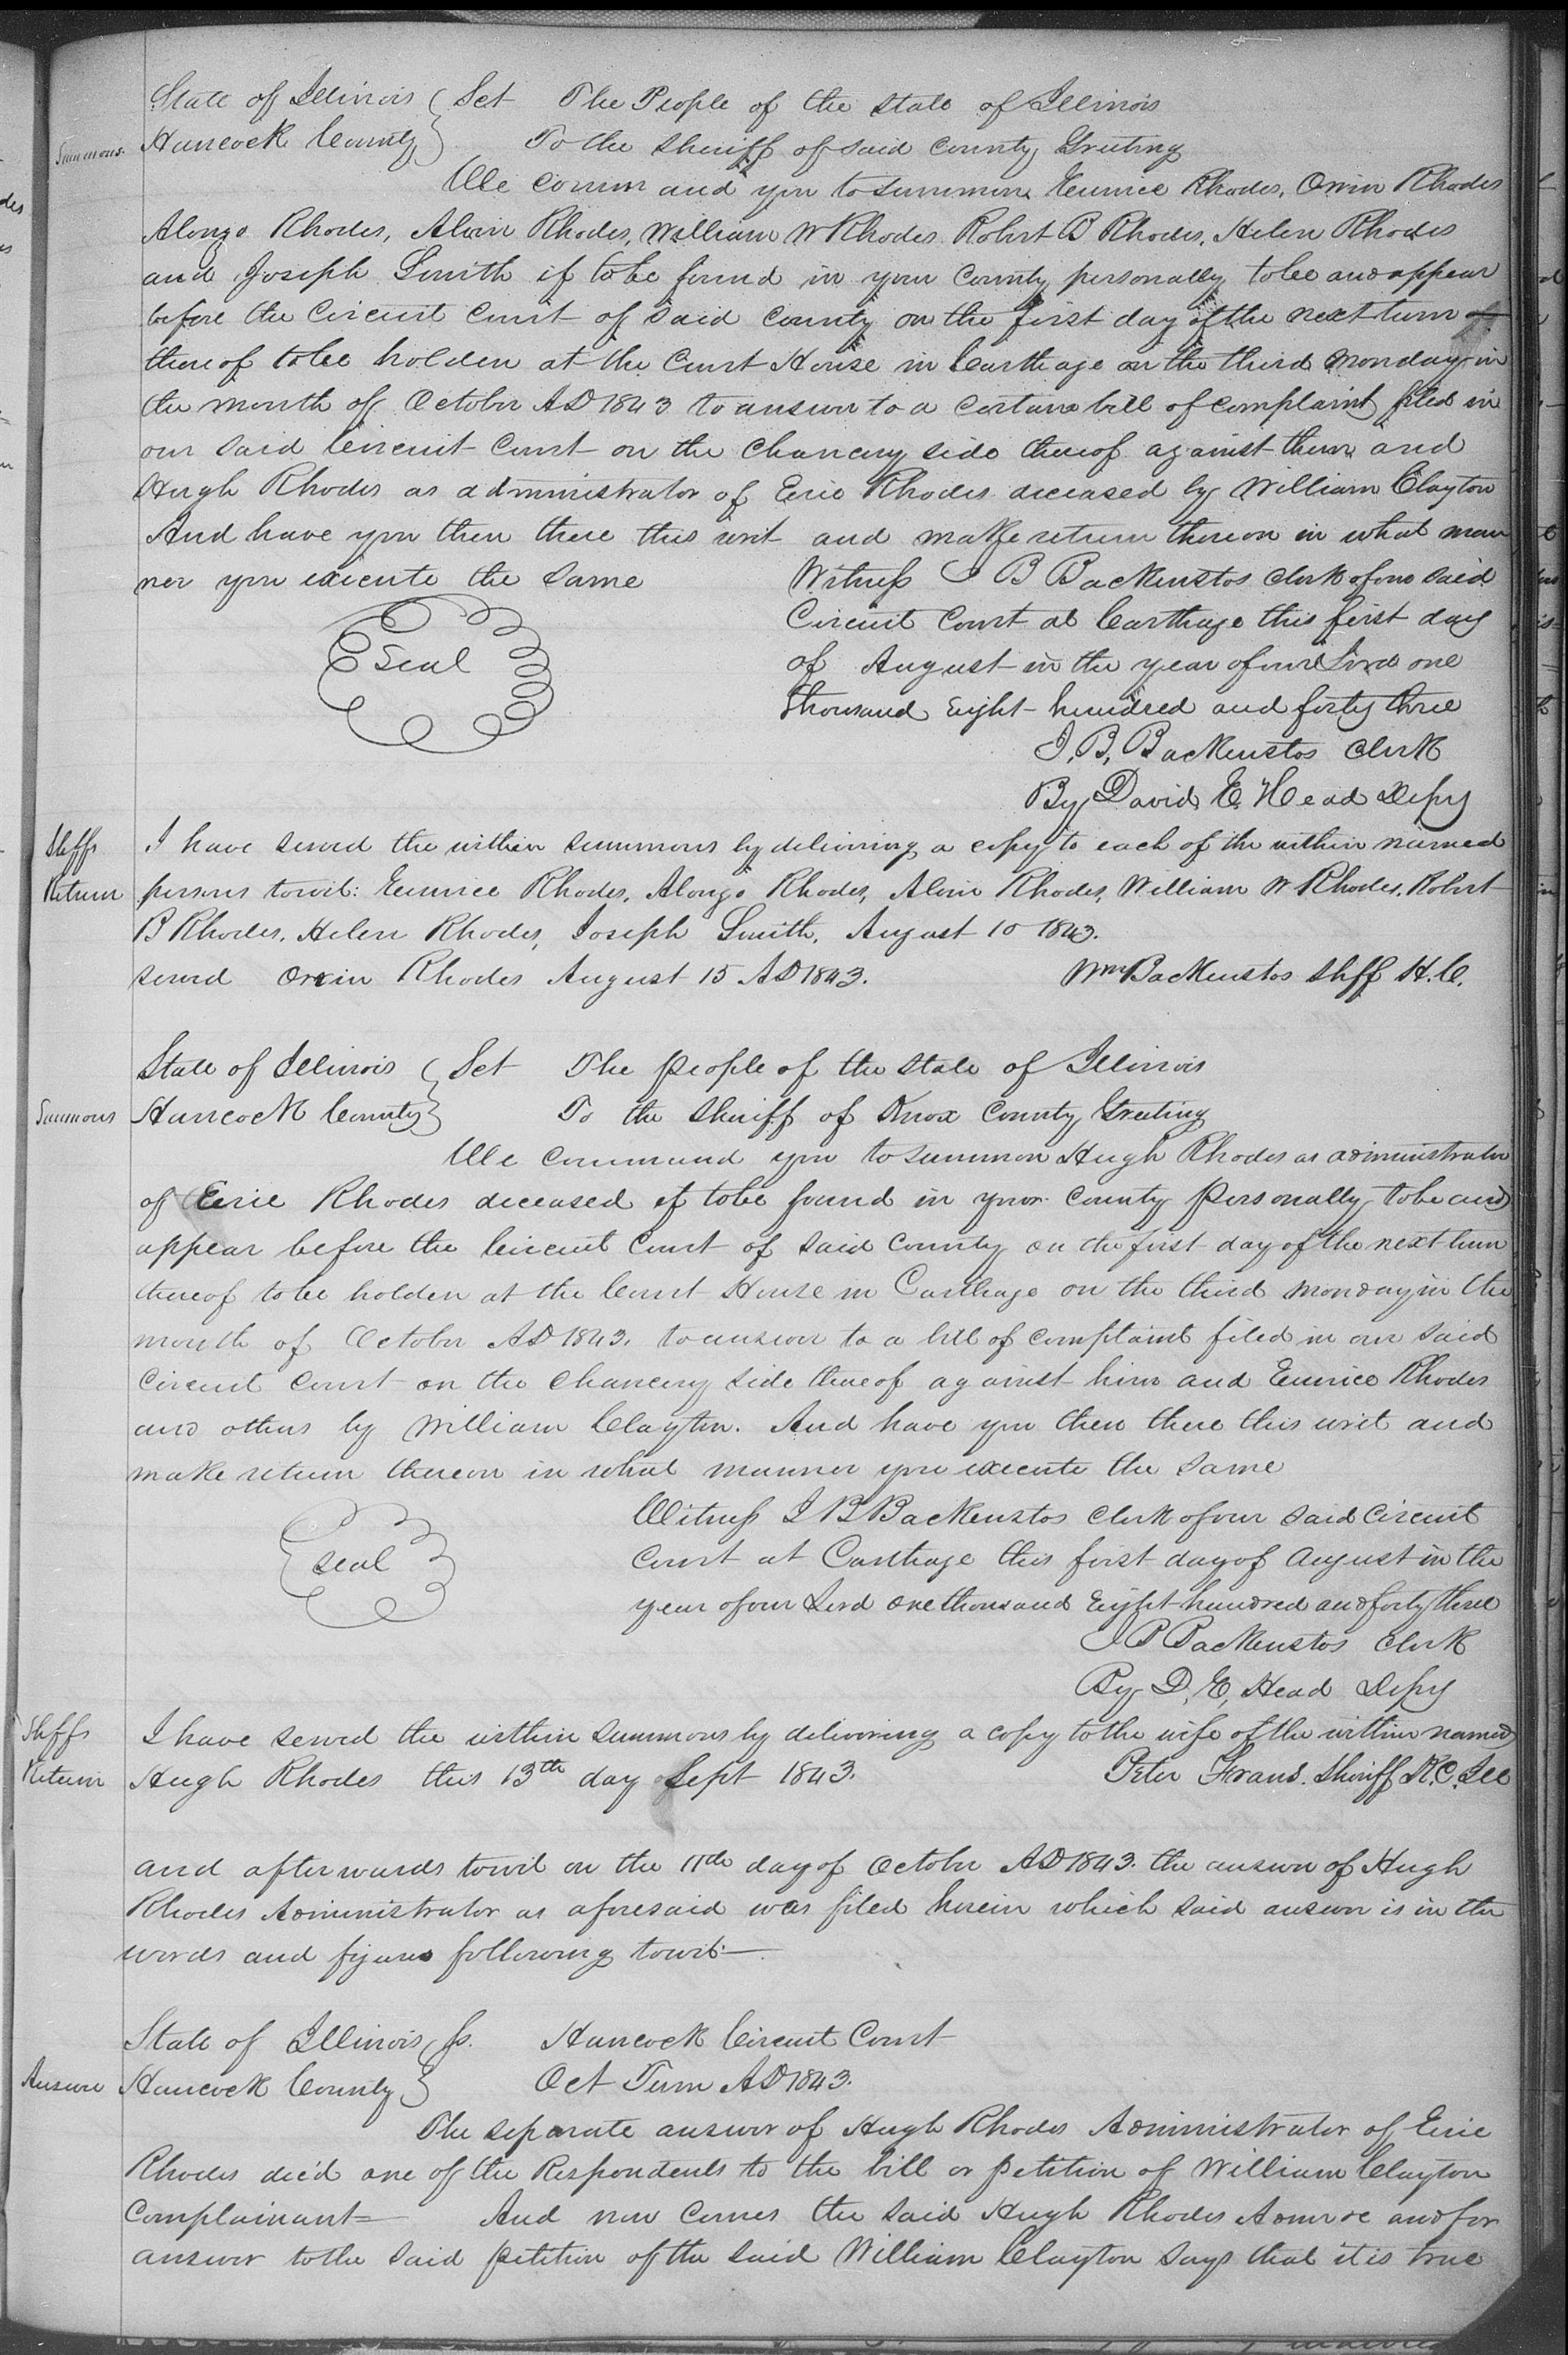 State of Illinois } Sct The People of the State of Illinois
Summons. Hancock County } To the Sheriff of said County Greeting
We command you to summon Eunice Rhodes, Orvin Rhodes
Alonzo Rhodes, Alvin Rhodes, William W Rhodes. Robert B Rhodes, Helen Rhodes
and Joseph Smith if to be found in your County personally to be and appear
before the Circuit Court of said County on the first day of the next term
thereof to be holden at the Court House in Carthage on the third Monday in
the month of October AD 1843 to answer to a certain bill of complaint filed in
our said Circuit Court on the Chancery side thereof against them and
Hugh Rhodes as administrator of Eric Rhodes deceased by William Clayton
And have you then there this writ and make return thereon in what man
ner you execute the same Witness J B Backenstos Clerk of our said
Circuit Court at Carthage this first day
Seal of August in the year of our Lord one
thousand Eight hundred and forty three
J. B. Backenstos Clerk
By David E. Head Depy
Shffs I have served the within summons by delivering a copy to each of the within named
Return persons towit: Eunice Rhodes, Alonzo Rhodes, Alvin Rhodes, William W Rhodes, Robert
B Rhodes, Helen Rhodes, Joseph Smith, August 10 1843.
served Orvin Rhodes August 15 AD 1843. Wm Backenstos Shff H.C.
State of Illinois } Sct The people of the State of Illinois
Summons Hancock County } To the Sheriff of Knox County Greeting
We command you to summon Hugh Rhodes as administrator
of Eric Rhodes deceased if to be found in your County Personally to be and
appear before the Circuit Court of said County on the first day of the next term
thereof to be holden at the Court House in Carthage on the third Monday in the
month of October AD 1843. to answer to a bill of complaint filed in our said
Circuit Court on the Chancery side thereof against him and Eunice Rhodes
and others by William Clayton. And have you then there this writ and
make return thereon in what manner you execute the same
Witness J B Backenstos Clerk of our said Circuit
Seal Court at Carthage this first day of August in the
year of our Lord one thousand Eight hundred and forty three
J B Backenstos Clerk
By D. E. Head Depy
Shffs I have served the within summons by delivering a copy to the wife of the within named
Return Hugh Rhodes this 13th day Sept 1843. Peter Frans. Sheriff K.C. Ill
and afterwards towit on the 11th day of October AD 1843. the answer of Hugh
Rhodes Administrator as aforesaid was filed herein which said answer is in the
words and figures following towit—
State of Illinois } ss. Hancock Circuit Court
Answer Hancock County } Oct Term AD 1843.
The separate answer of Hugh Rhodes Administrator of Eric
Rhodes dec'd one of the Respondents to the bill or petition of William Clayton
Complainant= And now comes the said Hugh Rhodes and for
answer to the said petition of the said William Clayton says that it is true